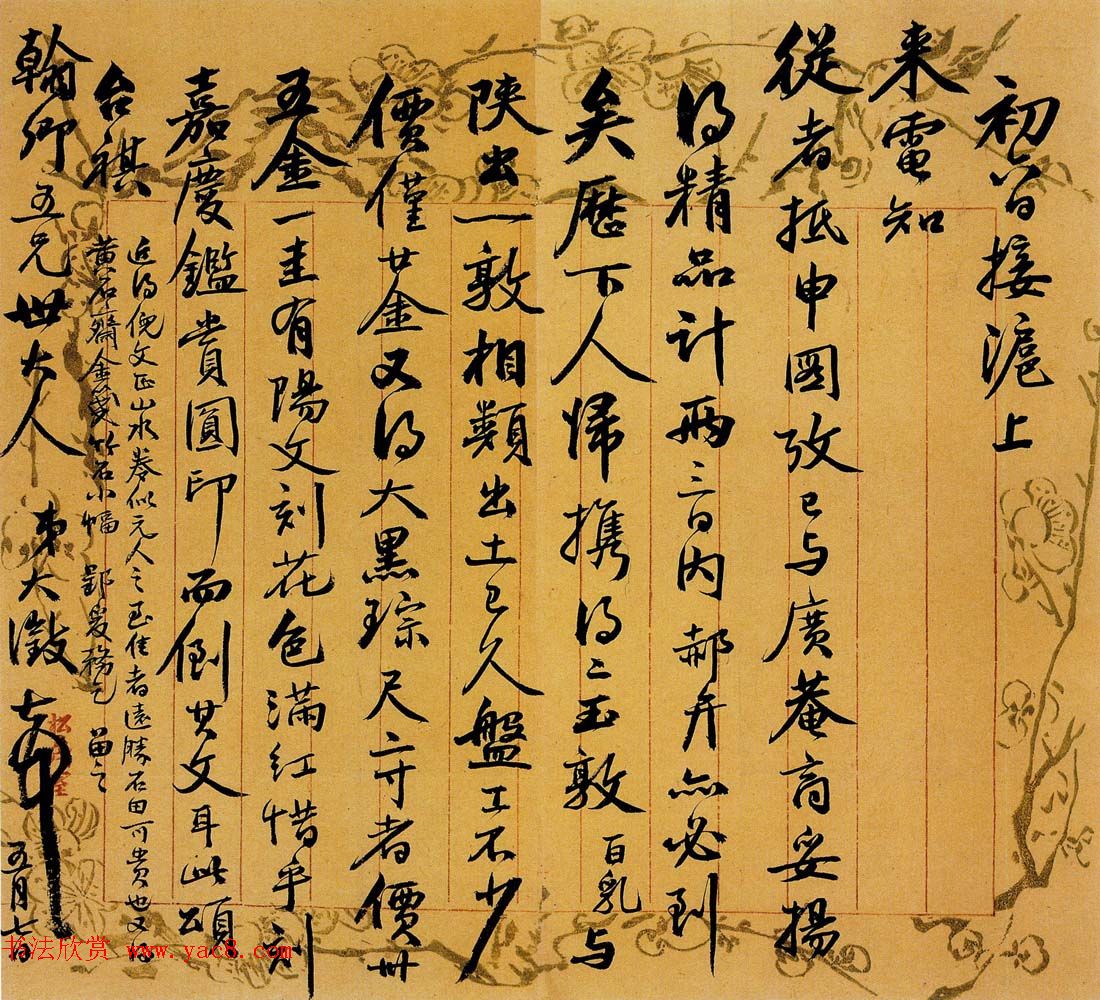 初六日接滬上
來電知
從者抵申圖攷已与廣菴商妥揚
得精品計兩三日內郝弁亦必到
矣歷下人歸攜得二玉敦百乳与
陝出一敦相類出土已久盤工不少
價僅廿金又得大黑琮尺六寸者價卅
五金一圭有陽文刻花色滿紅惜乎刻
嘉慶鑑賞圓印而倒其文耳此頌
台祺
近得倪文正山水卷似元人之至佳者遠勝石田可貴也又得
黃石齋金箋竹石小幅
翰卿五兄世大人 弟大澂頓首 五月七日
书法欣赏 www.yac8.com